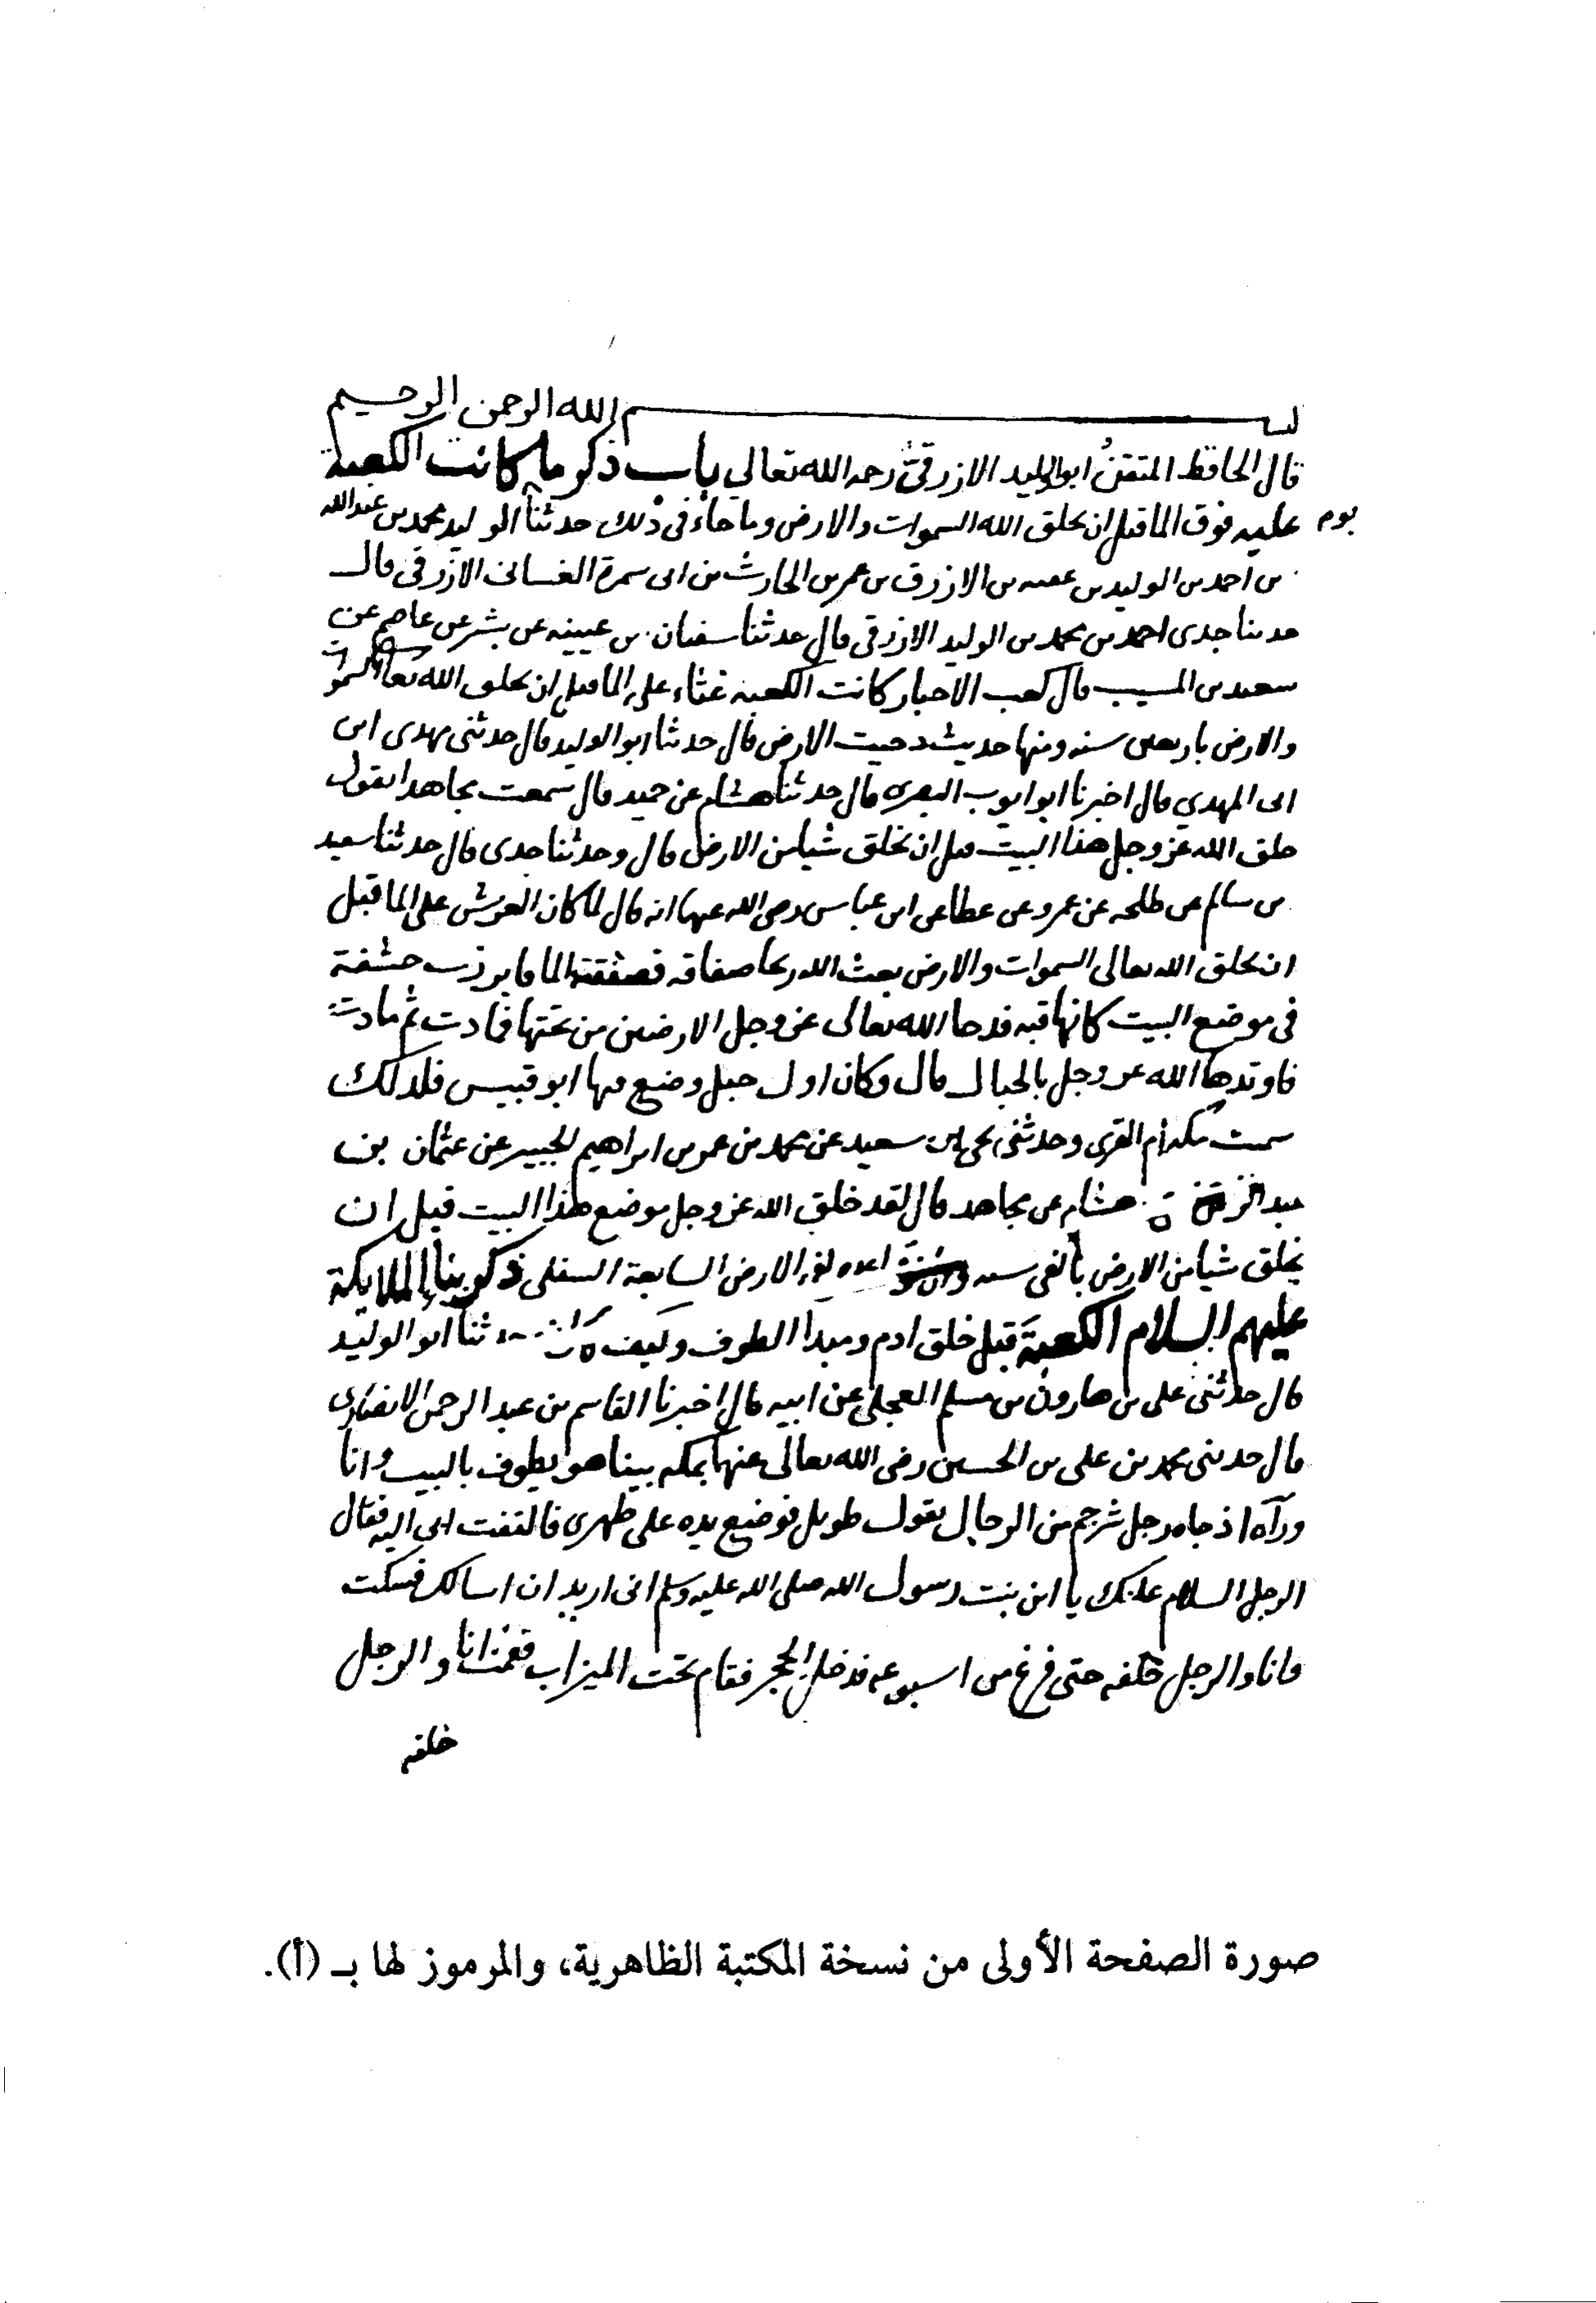 بسم الله الرحمن الرحيم
قال الحافظ المتقن ابو الوليد الازرقي رحمه الله تعالى باب ذكر ما كانت الكعبة
يوم
عليه فوق الما قبل ان يخلق الله السموات والارض وما جاء في ذلك حدثنا ابو الوليد محمد بن عبد الله
بن احمد بن الوليد بن عقبه بن الازرق بن عمر بن الحارث بن ابى سمرة الغسانى الازرقى قال
حدثنا جدى احمد بن محمد بن الوليد الازرقى قال حدثنا سفيان بن عيينه عن بشر عن عاصم عن
سعيد بن المسيب قال كعب الاحبار كانت الكعبه غثاء على الما قبل ان يخلق الله تعالى السموات
والارض باربعين سنه ومنها حديث دحيت الارض قال حدثنا ابو الوليد قال حدثنى مهدى ابن
ابى المهدي قال اخبرنا ابو ايوب البصرى قال حدثنا هشام عن حميد قال سمعت مجاهدا يقول
خلق الله عز وجل هذا البيت قبل ان يخلق شيا من الارض قال وحدثنا جدى قال حدثنا سعيد
بن سالم عن طلحه عن عمرو عن عطا عن ابن عباس رضى الله عنهما انه قال لما كان العرش على الما قبل
ان يخلق الله تعالى السموات والارض بعث الله ريحا صفاقه فصفقة الما فابرزت حشفة
فى موضع البيت كانها قبه فدحا الله تعالى عز وجل الارضين من تحتها فمادت ثم مادت
فاوتدها الله عز وجل بالجبال قال وكان اول جبل وضع فيها ابو قبيس فلذلك
سميت مكه ام القرى وحدثنى يحى ابن سعيد عن محمد بن عمر بن ابراهيم الجبير عن عثمان بن
عبد هشام عن مجاهد قال لقد خلق الله عز وجل موضع هذا البيت قبل ان
يخلق شيا من الارض بالفى سنه لفى الارض السابعة السفلى ذكر بناء الملايكة
عليهم السلام الكعبة قبل خلق ادم ومبدا الطوف وكيف ثنا ابو الوليد
قال حدثنى على بن هارون بن مسلم العجلى عن ابيه قال اخبرنا القاسم بن عبد الرحمن الانصارى
قال حدثنى محمد بن على بن الحسين رضى الله تعالى عنهما بمكه بينا هو يطوف بالبيت وانا
ورآه اذ جاه رجل شرجم من الرجال يقول طويل فوضع يده على ظهرى فالتفت ابى اليه فقال
الرجل السلام عليك يا ابن بنت رسول الله صلى الله عليه وسلم انى اريد ان اسالك فسكت
وانا والرجل خلفه حتى فرغ من اسبوعه فدخل الحجر فقام تحت الميزاب فقمت انا والرجل
خلفه
صورة الصفحة الأولى من نسخة المكتبة الظاهرية، والمرموز لها بـ (أ).